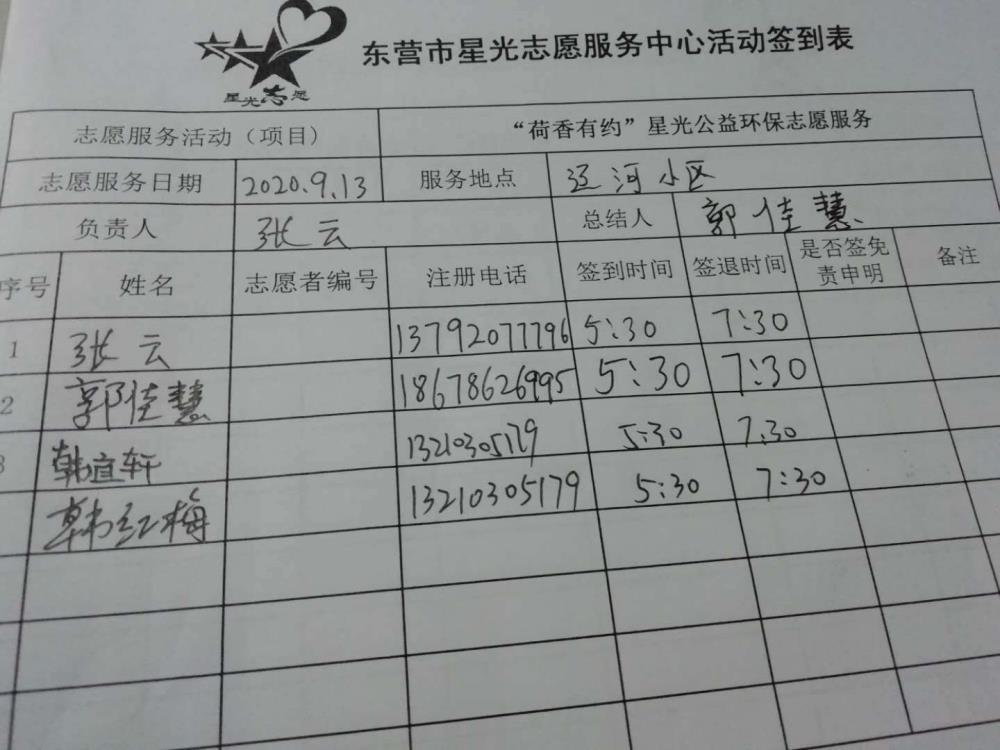 星光志愿
东营市星光志愿服务中心活动签到表
志愿服务活动（项目） “荷香有约”星光公益环保志愿服务
志愿服务日期 2020.9.13 服务地点 辽河小区
负责人 张云 总结人 郭佳慧
序号 姓名 志愿者编号 注册电话 签到时间 签退时间 是否签免责申明 备注
1 张云 13792077796 5:30 7:30
2 郭佳慧 18678626995 5:30 7:30
3 韩宜轩 13210305179 5:30 7.30
韩红梅 13210305179 5:30 7:30